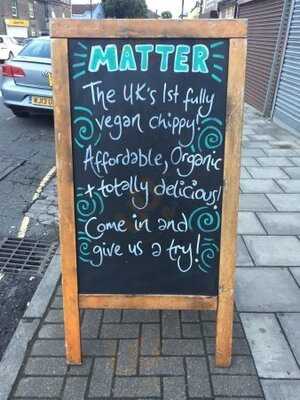 MATTER
The UK's 1st fully
vegan chippy!
Affordable, Organic
+ totally delicious!
Come in and
give us a try!